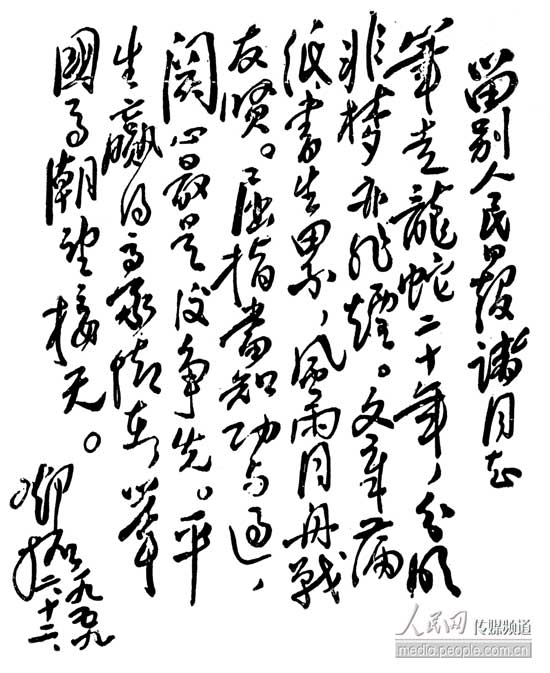 留别人民日報諸同志
筆走龍蛇二十年，分明
非梦亦非煙。文章满
纸書生累，风雨同舟戰
友贤。屈指當知功与过，
関心最是後争先。平
生赢得豪情在，举
國高潮望接天。
鄧拓
一九五九
二、十二、
人民网 传媒频道
media.people.com.cn